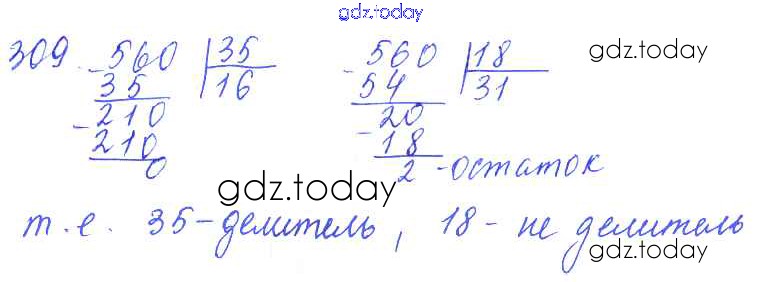 gdz.today
309. -560 |35 -560 |18 gdz.today
35 16 54 31
-210 20
210 -18
0 2 -остаток
gdz.today
т.е. 35-делитель, 18- не делитель
gdz.today